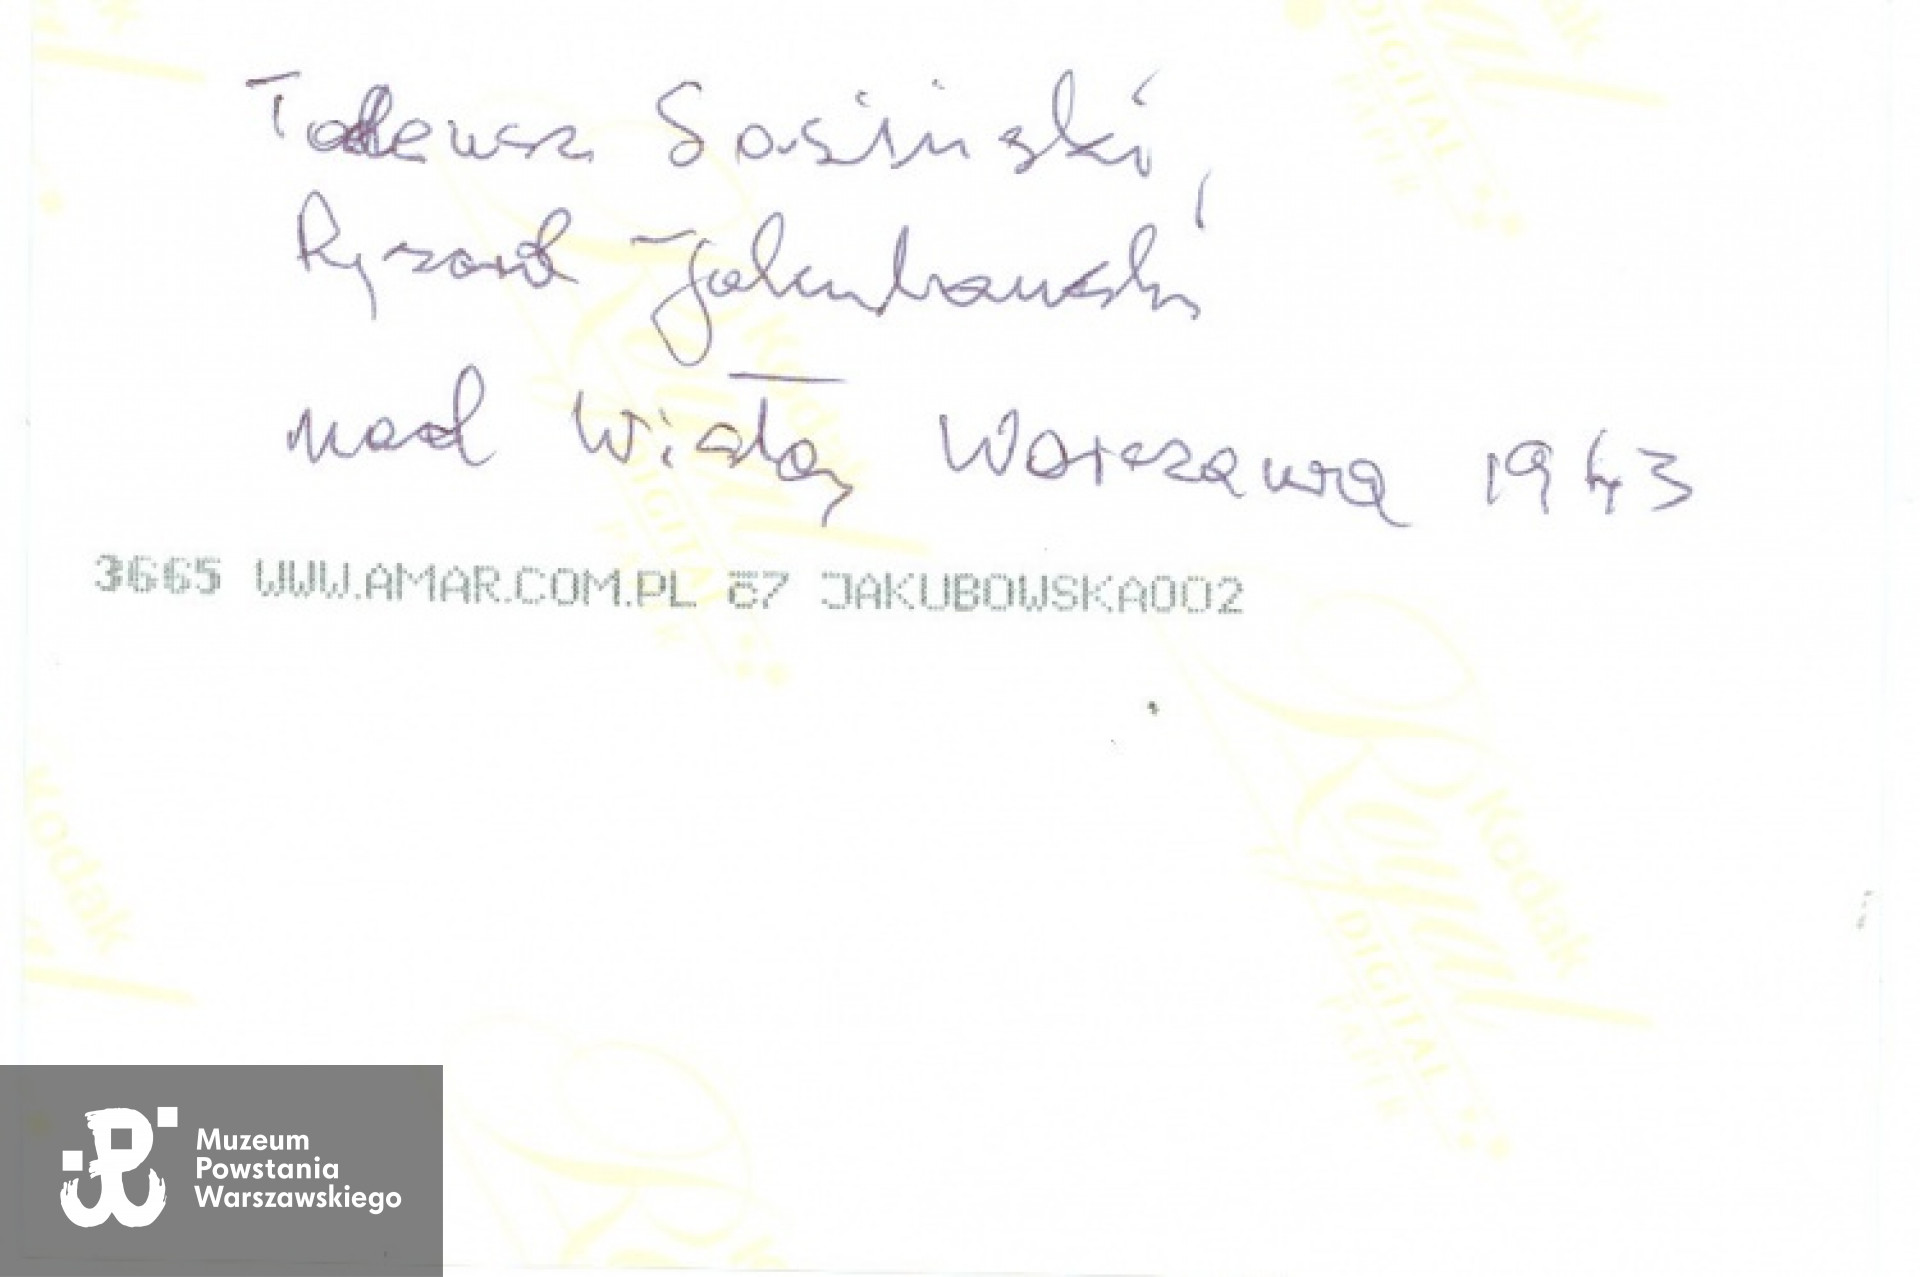 Tadeusz Sosiński,
Ryszard Jakubowski
nad Wisłą Warszawa 1943
3665 WWW.AMAR.COM.PL 67 JAKUBOWSKA002
Kodak
Royal
DIGITAL
PAPER
Muzeum
Powstania
Warszawskiego